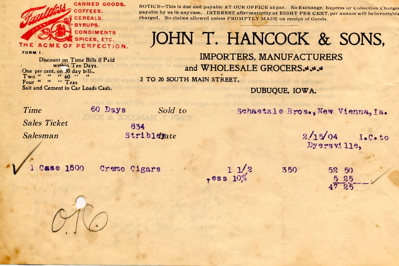 CANNED GOODS.
COFFEES.
CEREALS.
SYRUPS.
CONDIMENTS
SPICES, ETC.
Faultless
THE ACME OF PERFECTION.
NOTICE—This is due and payable AT OUR OFFICE at par. No Exchange, Express or Collection Charges
payable by us in any case. INTEREST after maturity at EIGHT PER CENT. per annum will be invariably
charged. No claims allowed unless PROMPTLY MADE on receipt of Goods.
JOHN T. HANCOCK & SONS,
IMPORTERS, MANUFACTURERS
AND WHOLESALE GROCERS.
2 TO 20 SOUTH MAIN STREET.
DUBUQUE, IOWA.
FORM 1.
Discount on Time Bills if Paid
within Ten Days.
One per cent. on 30 day bills.
Two " " 60 " "
Four " " Teas
Salt and Cement in Car Loads Cash.
Time 60 Days Sold to Schaetzle Bros., New Vienna, Ia.
Sales Ticket 834
Salesman Stribley Date 2/15/04 I.C. to
Dyersville,
1 Case 1500 Cremo Cigars 1 1/2 350 52 50
ess 10% 5 25
47 25
O.K.